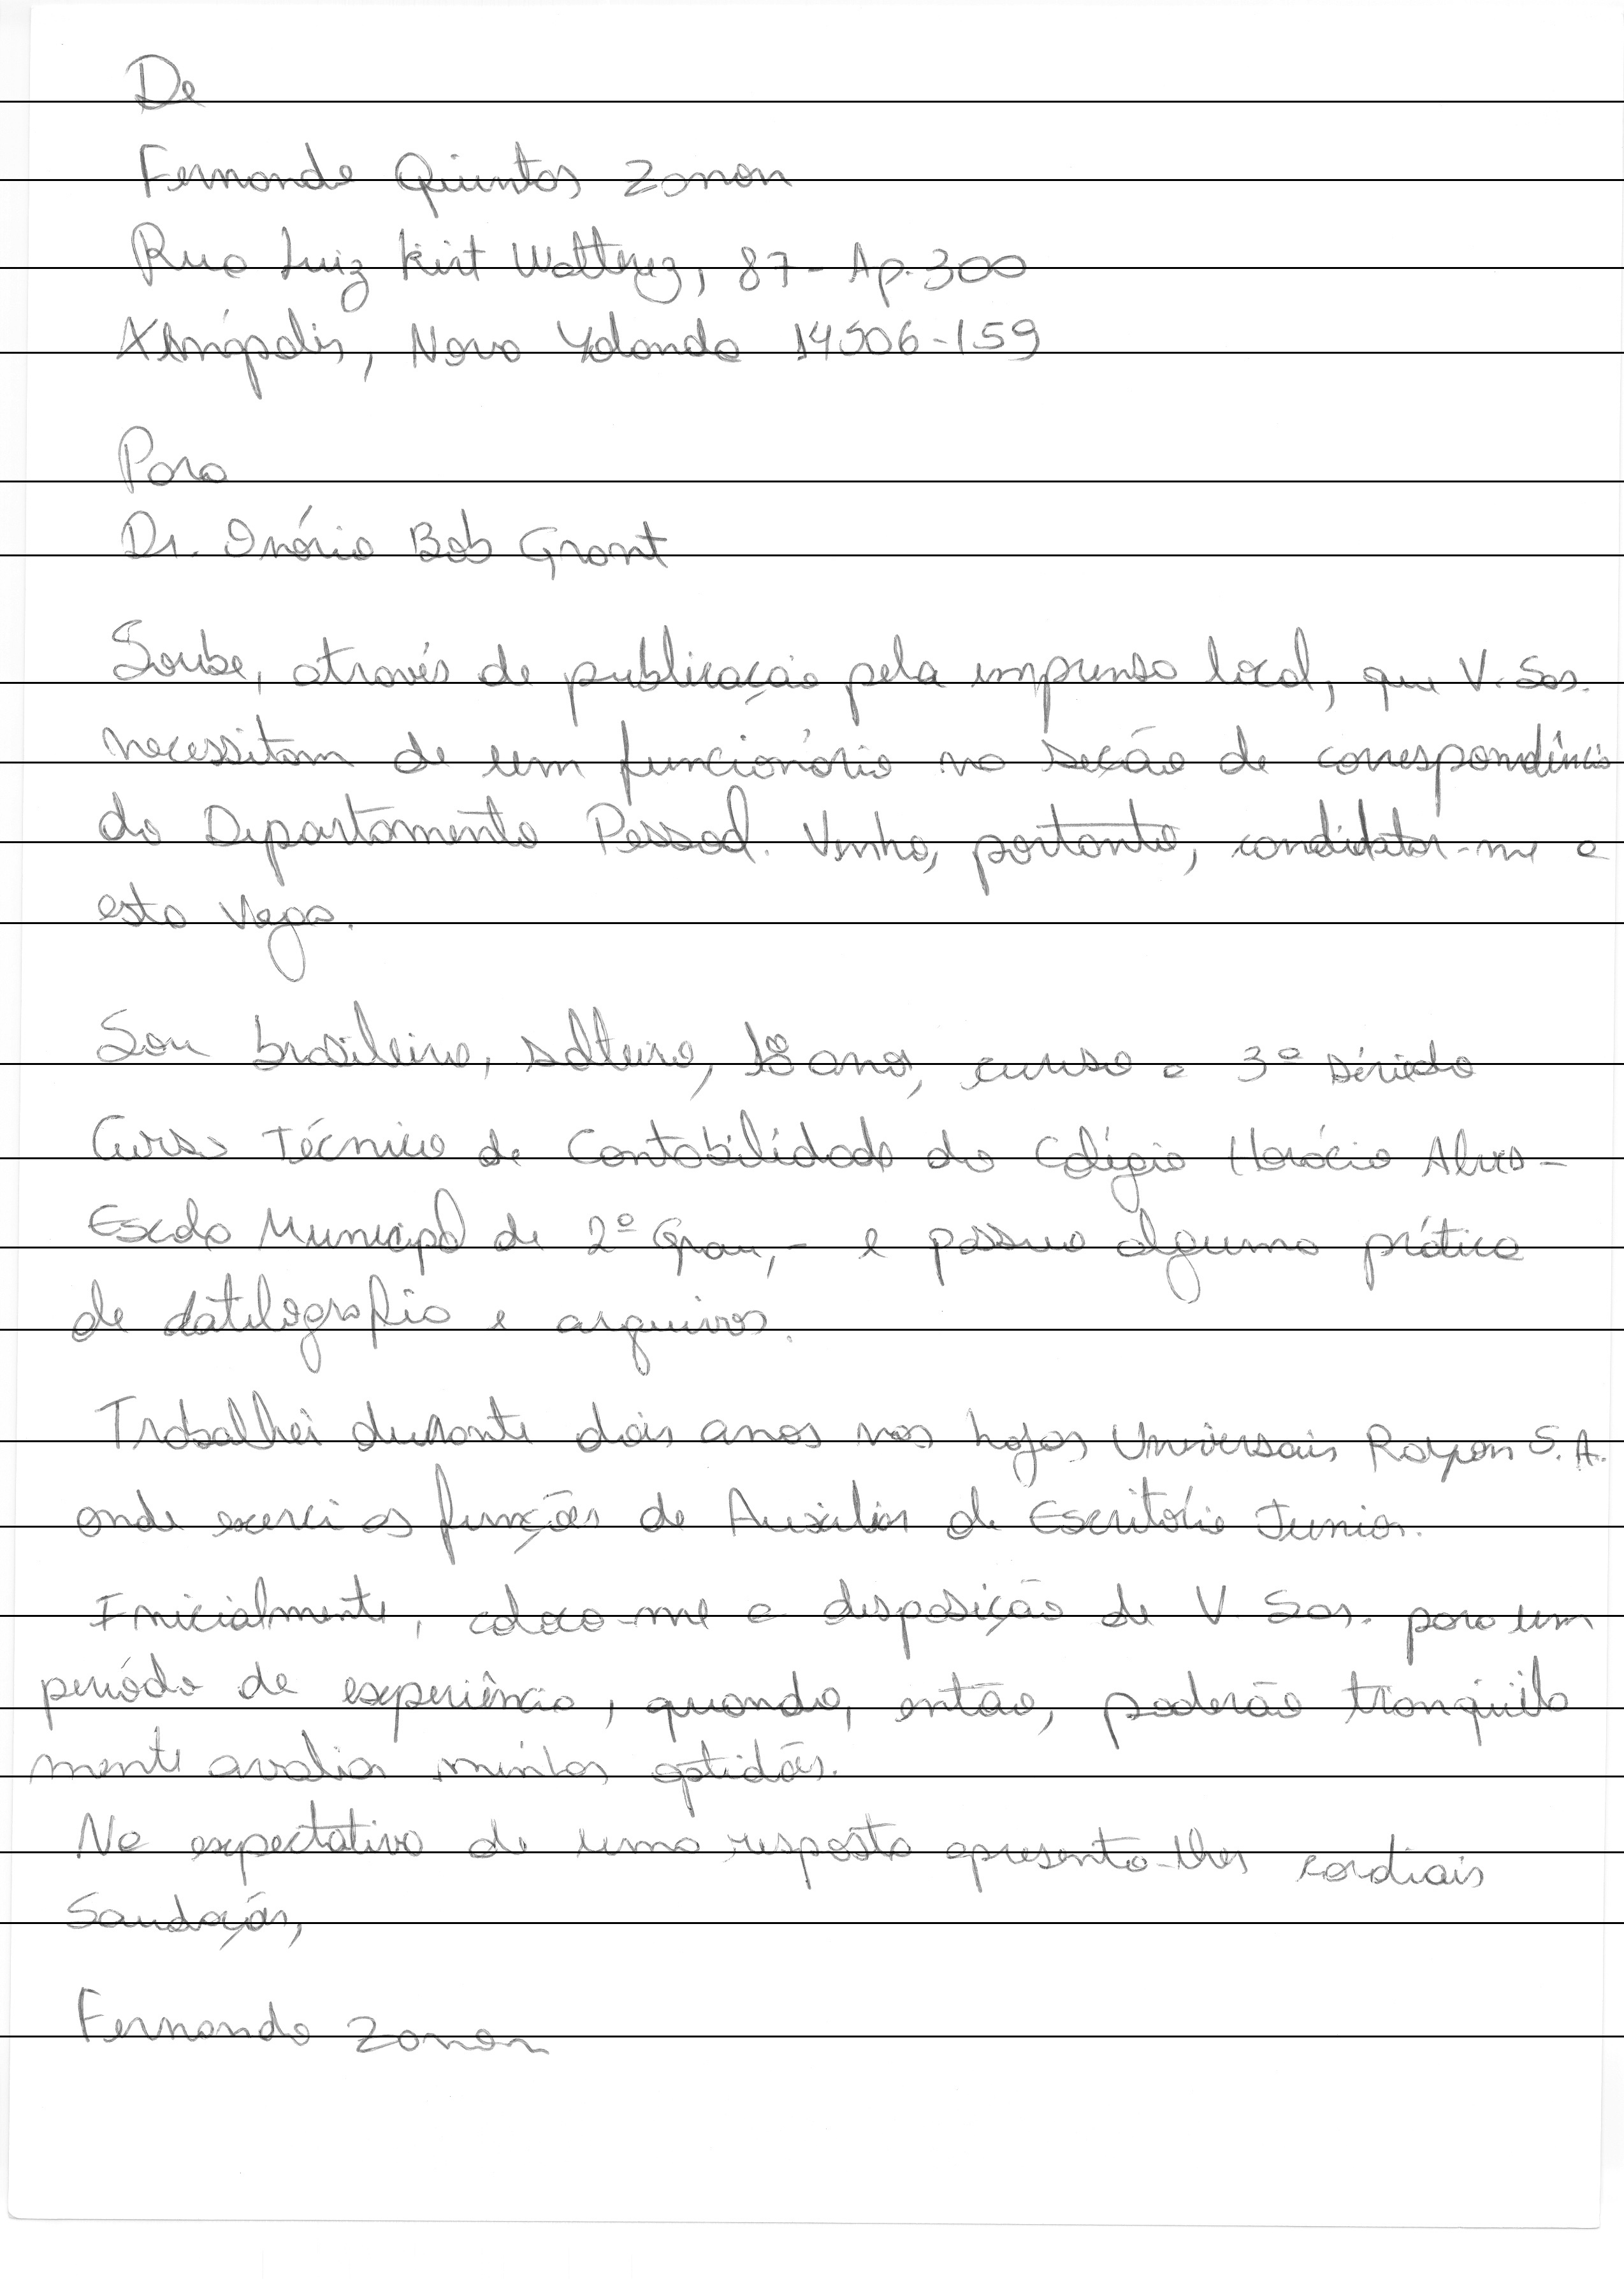 De
Fernando Quintos Zanon
Rua Luiz Kirt Walterez, 87 - Ap. 300
Xenópolis, Nova Yolanda 14506-159
Para
Dr. Inório Bob Grant
Soube, através de publicação pela imprensa local, que V. Sas.
necessitam de um funcionário na seção de correspondência
do Departamento Pessoal. Venho, portanto, candidatar-me a
esta vaga.
Sou brasileiro, solteiro, 18 anos, curso a 3ª série do
Curso Técnico de Contabilidade do Colégio Horácio Alves -
Escola Municipal de 2º Grau, - e possuo alguma prática
de datilografia e arquivos.
Trabalhei durante dois anos nas Lojas Universais Rayon S. A.
onde exerci as funções de Auxiliar de Escritório Junior.
Inicialmente, coloco-me a disposição de V. Sas. para um
período de experiência, quando, então, poderão tranquila
mente avaliar minhas aptidões.
Na expectativa de uma resposta apresento-lhes cordiais
Saudações,
Fernando Zanon